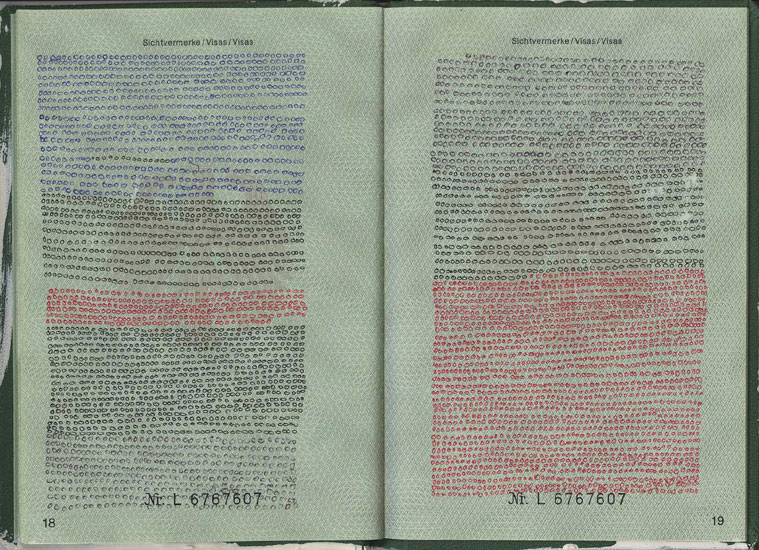 Sichtvermerke/Visas/Visas
Nr. L 6767607
18
Sichtvermerke/Visas/Visas
Nr. L 6767607
19